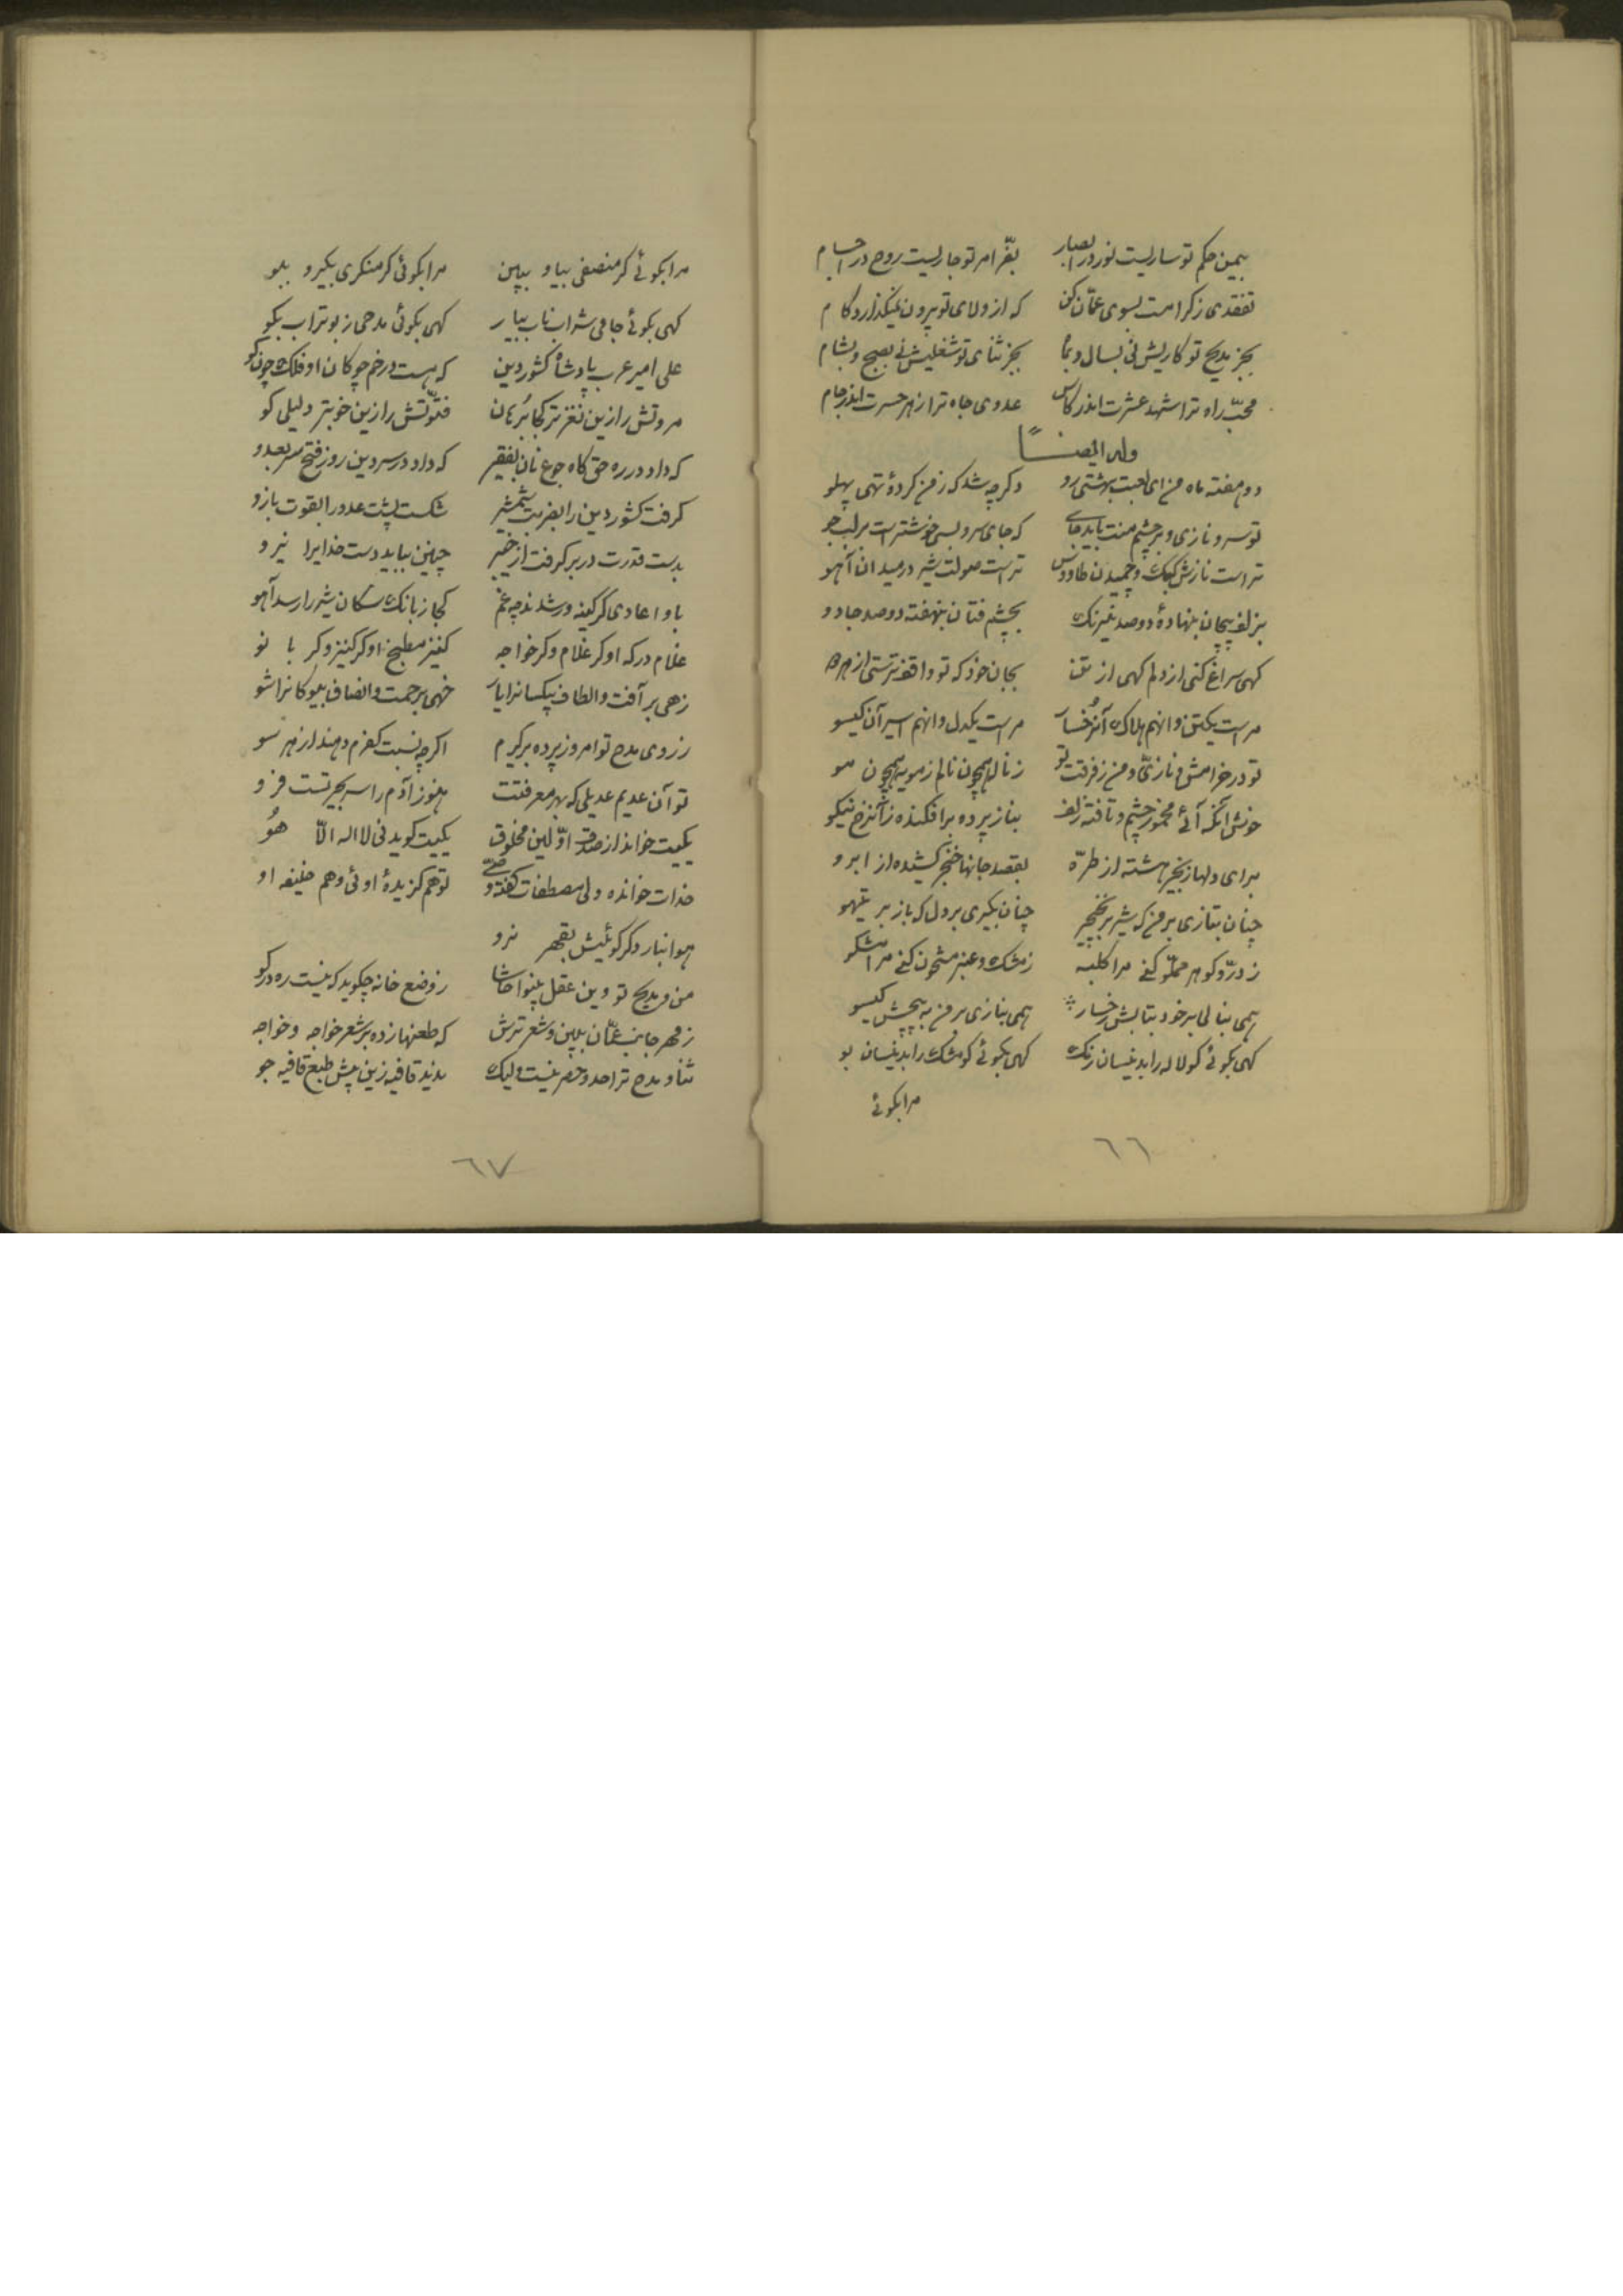 بیمن حکم تو ساریست نور در ابصار بفرّ امر تو جاریست روح در اجسام
تفقدی ز کرامت بسوی عمّان کن که از ولای تو بیرون نمیگذارد کام
بجز مدیح تو کاریش نی بسال و بماه بجز ثنای تو شغلیش نی بصبح و بشام
محبّ راه ترا شهد عشرت اندر کاس عدوی جاه ترا زهر حسرت اندر جام
وله ایضــاً
دوهفته ماه من ای لعبت بهشتی رو دکر چه شد که ز من کردهٔ تهی پهلو
تو سرو نازی و بر چشم منت باید جای که جای سرو بسی خوشتر است بر لب جو
تراست نازش کبک و چمیدن طاوس تراست صولت شیر در میدان آهو
بزلف پیچان بنهادهٔ دوصد نیرنک بچشم فتان بنهفته دوصد جادو
کهی سراغ کنی از دلم کهی از تن بجان خود که تو واقفتر ستی از هر دو
مراست یکتن و انهم هلاک آنرخسار مراست یکدل و انهم اسیر آن کیسو
تو در خرامش و نازی و من ز فرقت تو ز ناله همچون نالم ز مویه همچون مو
خوش آنکه آئی مخمور چشم و تافته زلف بناز پرده برافکنده ز آنرخ نیکو
برای دلها زنجیر هشته از طرّه بقصد جانها خنجر کشیده از ابرو
چنان بتازی بر من که شیر بر نخجیر چنان بکیری بر دل که باز بر تیهو
ز درّ و کوهر مملّو کنی مرا کلبه ز مشک و عنبر مشحون کنی مرا مشکو
همی بنالی بر خود بتابش رخسار همی بنازی بر من به پیچش کیسو
کهی بکوئی کو لاله را بدینسان رنک کهی بکوئی کو مشک را بدینسان بو
مرا بکوئی
٦٦
مرا بکوئی کر منصفی بیا و ببین مرا بکوئی کر منکری بکیر و ببو
کهی بکوئی جامی شراب ناب بیار کهی بکوئی مدحی ز بوتراب بکو
علی امیر عرب پادشاه کشور دین که هست در خم چوکان او فلک چون کو
مروتش را زین نغزتر کجا برهان فتوّتش را زین خوبتر دلیلی کو
که داد در ره حق کاه جوع نان بفقیر که داد در سر دین روز فتح سر بعدو
کرفت کشور دین را بضربت شمشیر شکست پشت عدو را بقوت بازو
بدست قدرت در بر کرفت از خیبر چنین بباید دست خدایرا نیرو
با و اعادی کر کینه ور شدند چه غم کجا ز بانک سکان شیر را رسد آهو
غلام درکه او کر غلام و کر خواجه کنیز مطبخ او کر کنیز و کر بانو
زهی بر آفت و الطاف بیکسانرا یار خهی برحمت و انصاف بیوکانرا شو
ز روی مدح تو امروز پرده برکیرم اکرچه نسبت کفرم دهند از هر سو
تو آن عدیم عدیلی که بهر معرفتت هنوز آدم را سر بجیر تست فرو
یکیت خواند از صدق اوّلین مخلوق یکیت کوید نی لا اله الاّ هُو
خدات خوانده ولی مصطفات کفته وصی تو هم کزیدهٔ اوئی و هم خلیفه او
هوا نبارد کر کوئیش بقهر نرو
من و مدیح تو وین عقل بینوا حاشا ز وضع خانه چکوید که نیست ره در کو
ز مهر جانب عمّان ببین و شعر ترش که طعنها زده بر شعر خواجه و خواجه
ثنا و مدح ترا حد و حصر نیست ولیک ندید قافیه زین بیش طبع قافیه جو
٦٧